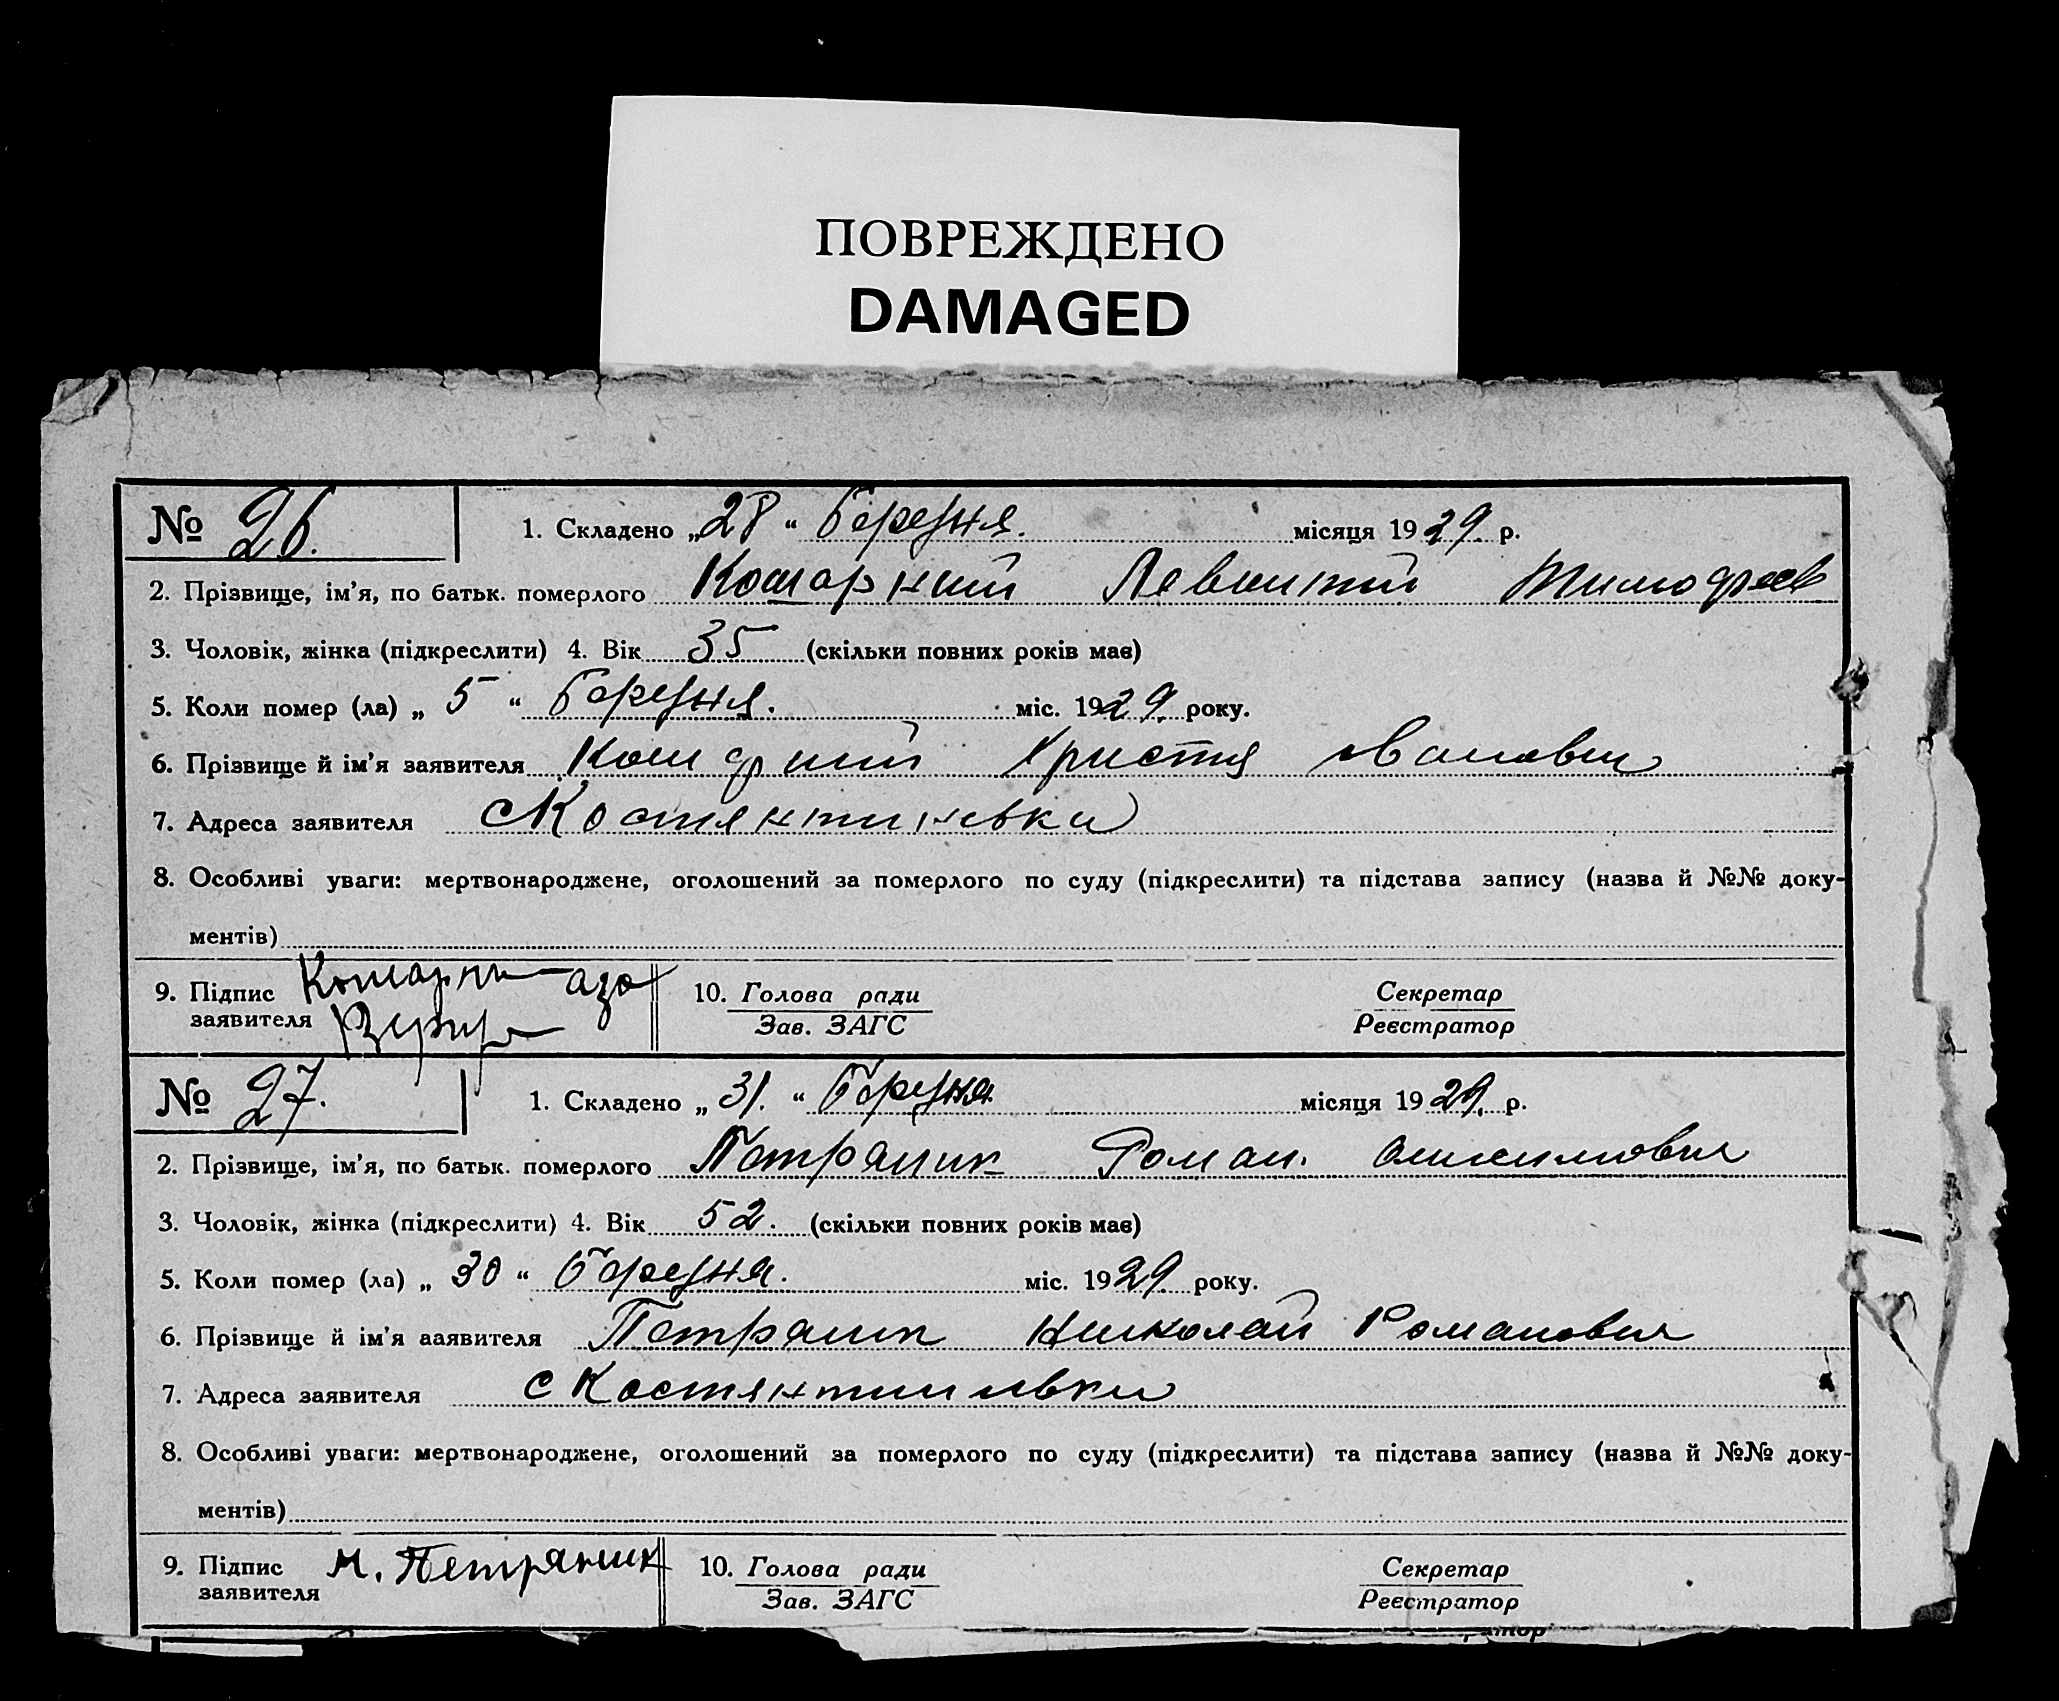 ПОВРЕЖДЕНО
DAMAGED
№ 26. 1. Складено „28“ березня. місяця 1929. р.
2. Прізвище, ім’я, по батьк. померлого Кошарний Левонтій Тимофеев
3. Чоловік, жінка (підкреслити) 4. Вік 35 (скільки повних років має)
5. Коли помер (ла) „5“ березня. міс. 1929. року.
6. Прізвище й ім’я заявителя Христя
7. Адреса заявителя с Костянтинівки
8. Особливі уваги: мертвонароджене, оголошений за померлого по суду (підкреслити) та підстава запису (назва й №№ доку-
ментів)
9. Підпис заявителя 10. Голова ради Секретар
Зав. ЗАГС Реєстратор
№ 27. 1. Складено „31.“ березня. місяця 1929. р.
2. Прізвище, ім’я, по батьк. померлого Петряник Роман.
3. Чоловік, жінка (підкреслити) 4. Вік 52. (скільки повних років має)
5. Коли помер (ла) „30“ березня. міс. 1929. року.
6. Прізвище й ім’я ааявителя Петряник Николай Романович
7. Адреса заявителя с Костянтинівки
8. Особливі уваги: мертвонароджене, оголошений за померлого по суду (підкреслити) та підстава запису (назва й №№ доку-
ментів)
9. Підпис заявителя Н. Петряник 10. Голова ради Секретар
Зав. ЗАГС Реєстратор